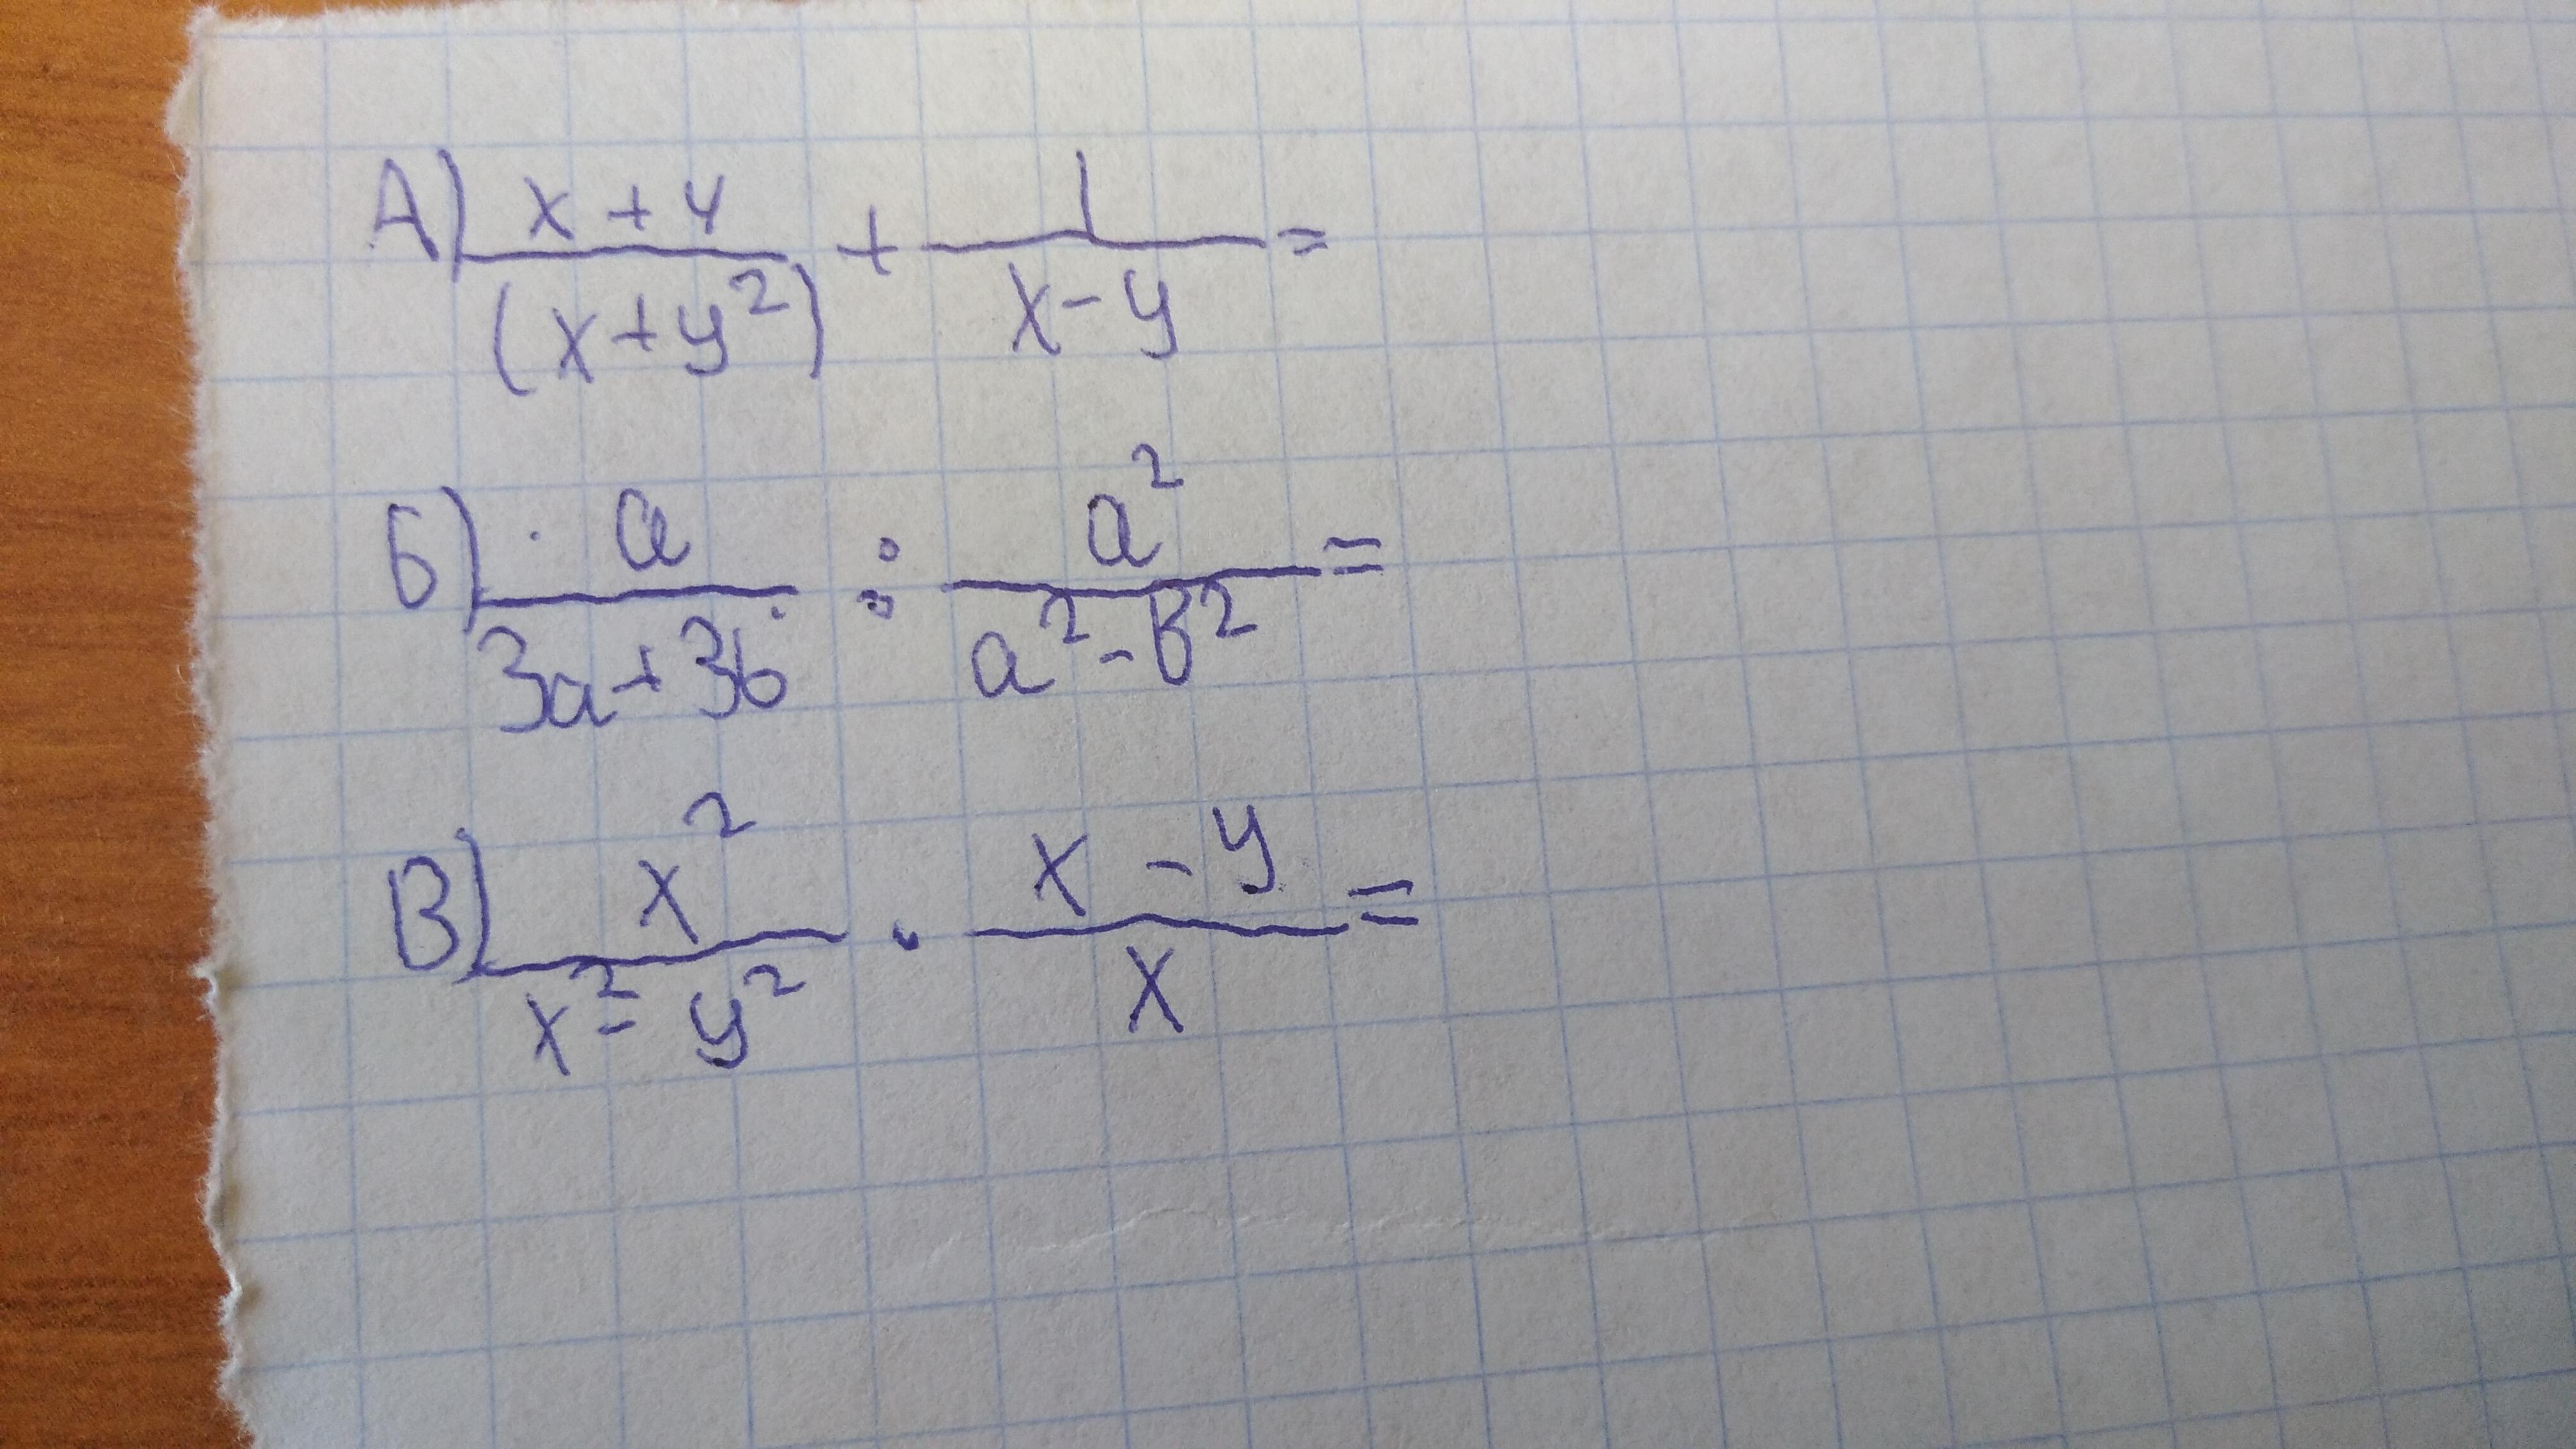 А) x + y / (x + y²) + 1 / x - y =
Б) a / 3a + 3b : a² / a² - b² =
В) x² / x² - y² · x - y / x =